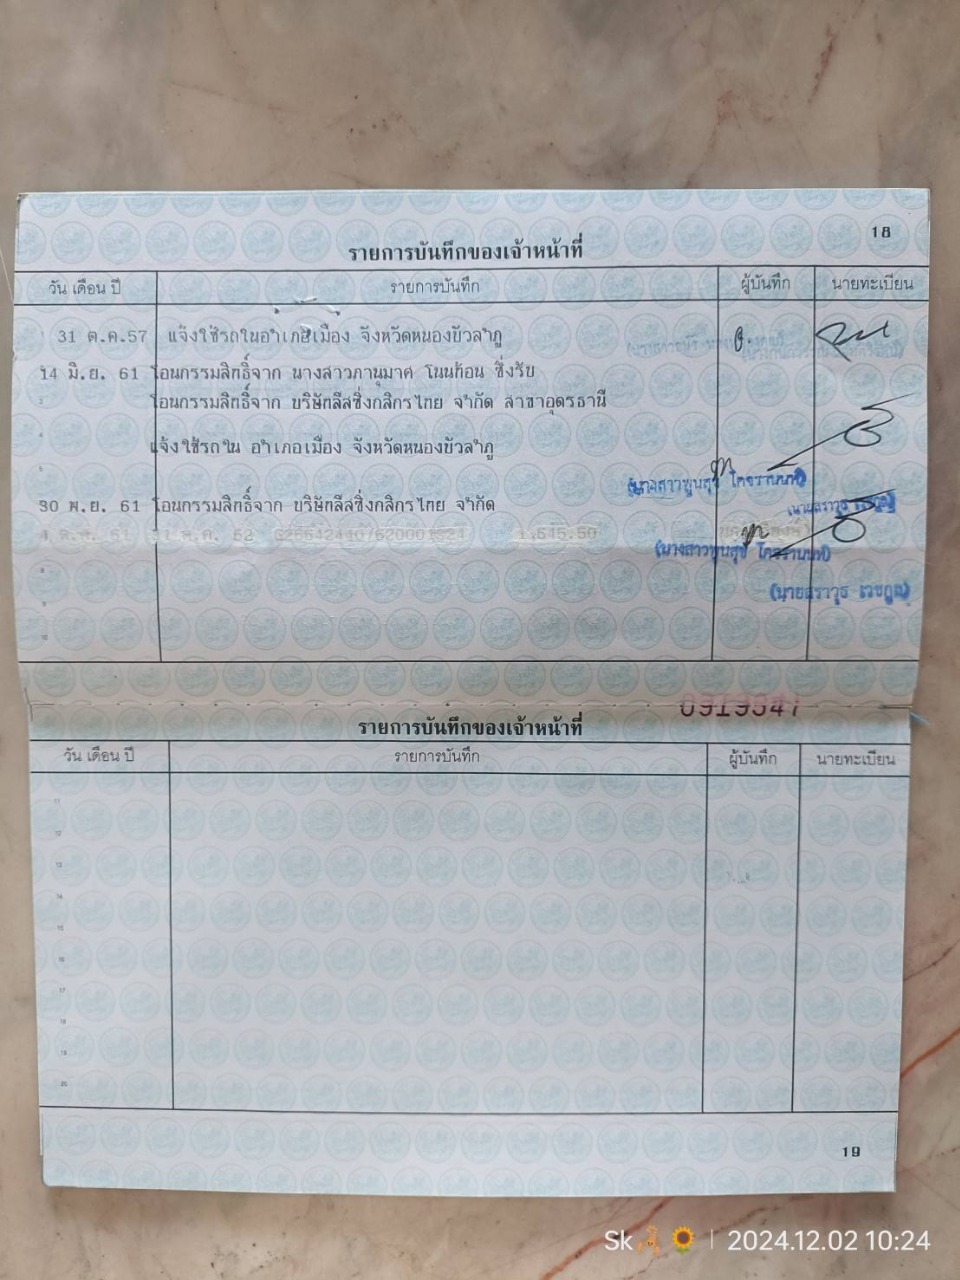 18
รายการบันทึกของเจ้าหน้าที่
วัน เดือน ปี รายการบันทึก ผู้บันทึก นายทะเบียน
31 ต.ค.57 แจ้งใช้รถในอำเภอเมือง จังหวัดหนองบัวลำภู
14 มิ.ย. 61 โอนกรรมสิทธิ์จาก นางสาวภานุมาศ โนนก้อน ซึ่งรับ
โอนกรรมสิทธิ์จาก บริษัทลีสซิ่งกสิกรไทย จำกัด สาขาอุดรธานี
แจ้งใช้รถใน อำเภอเมือง จังหวัดหนองบัวลำภู
(นางสาวพูนสุข
30 พ.ย. 61 โอนกรรมสิทธิ์จาก บริษัทลีสซิ่งกสิกรไทย จำกัด
(นายสราวุธ
4 ต.ค. 61 31 ต.ค. 62 1,545.50
(นางสาวพูนสุข
(นายสราวุธ เวชกูล)
0919341
รายการบันทึกของเจ้าหน้าที่
วัน เดือน ปี รายการบันทึก ผู้บันทึก นายทะเบียน
11
12
13
14
15
16
17
18
19
20
19
Sk 2024.12.02 10:24